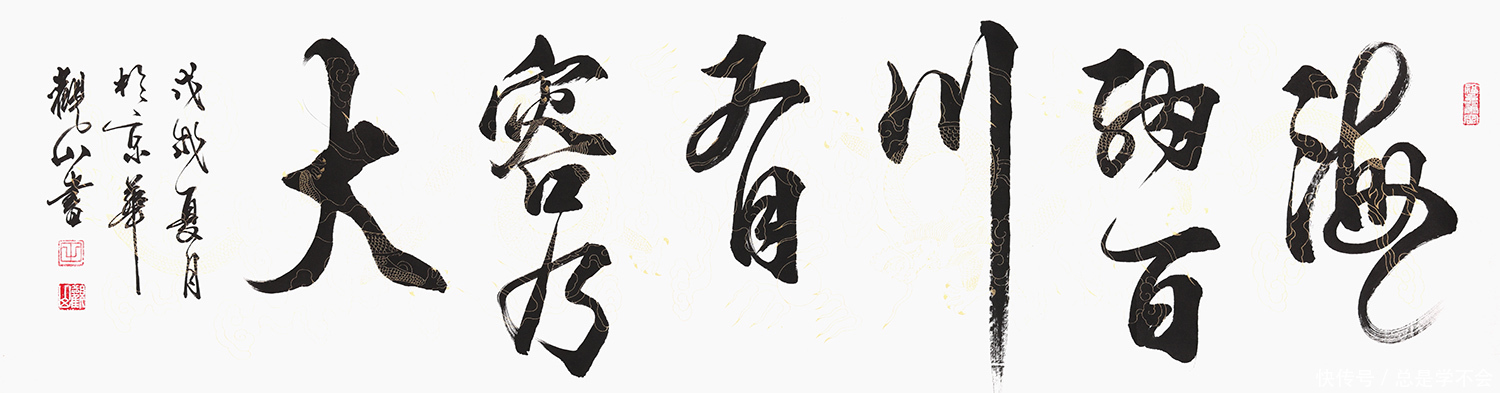 海
納百
川
有
容乃
大
戊戌夏月
於京華
觀山書
快传号 / 总是学不会